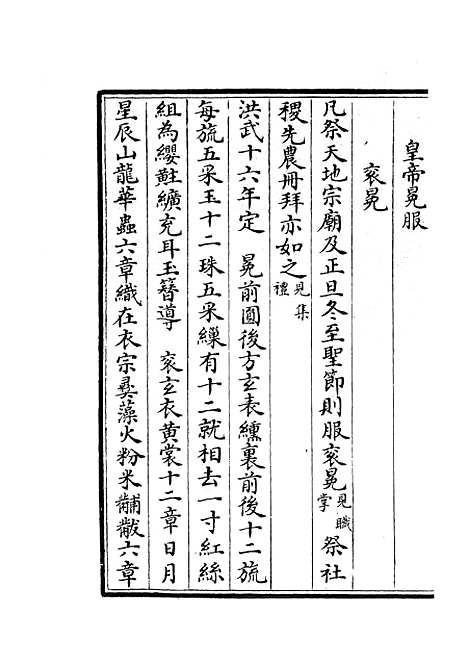 皇帝冕服
衮冕
凡祭天地宗廟及正旦冬至聖節則服衮冕見職掌祭社
稷先農冊拜亦如之見集禮
洪武十六年定 冕前圓後方玄表纁裏前後十二旒
每旒五采玉十二珠五采繅有十二就相去一寸紅絲
組為纓黈纊充耳玉簪導 衮玄衣黃裳十二章日月
星辰山龍華蟲六章織在衣宗彝藻火粉米黼黻六章